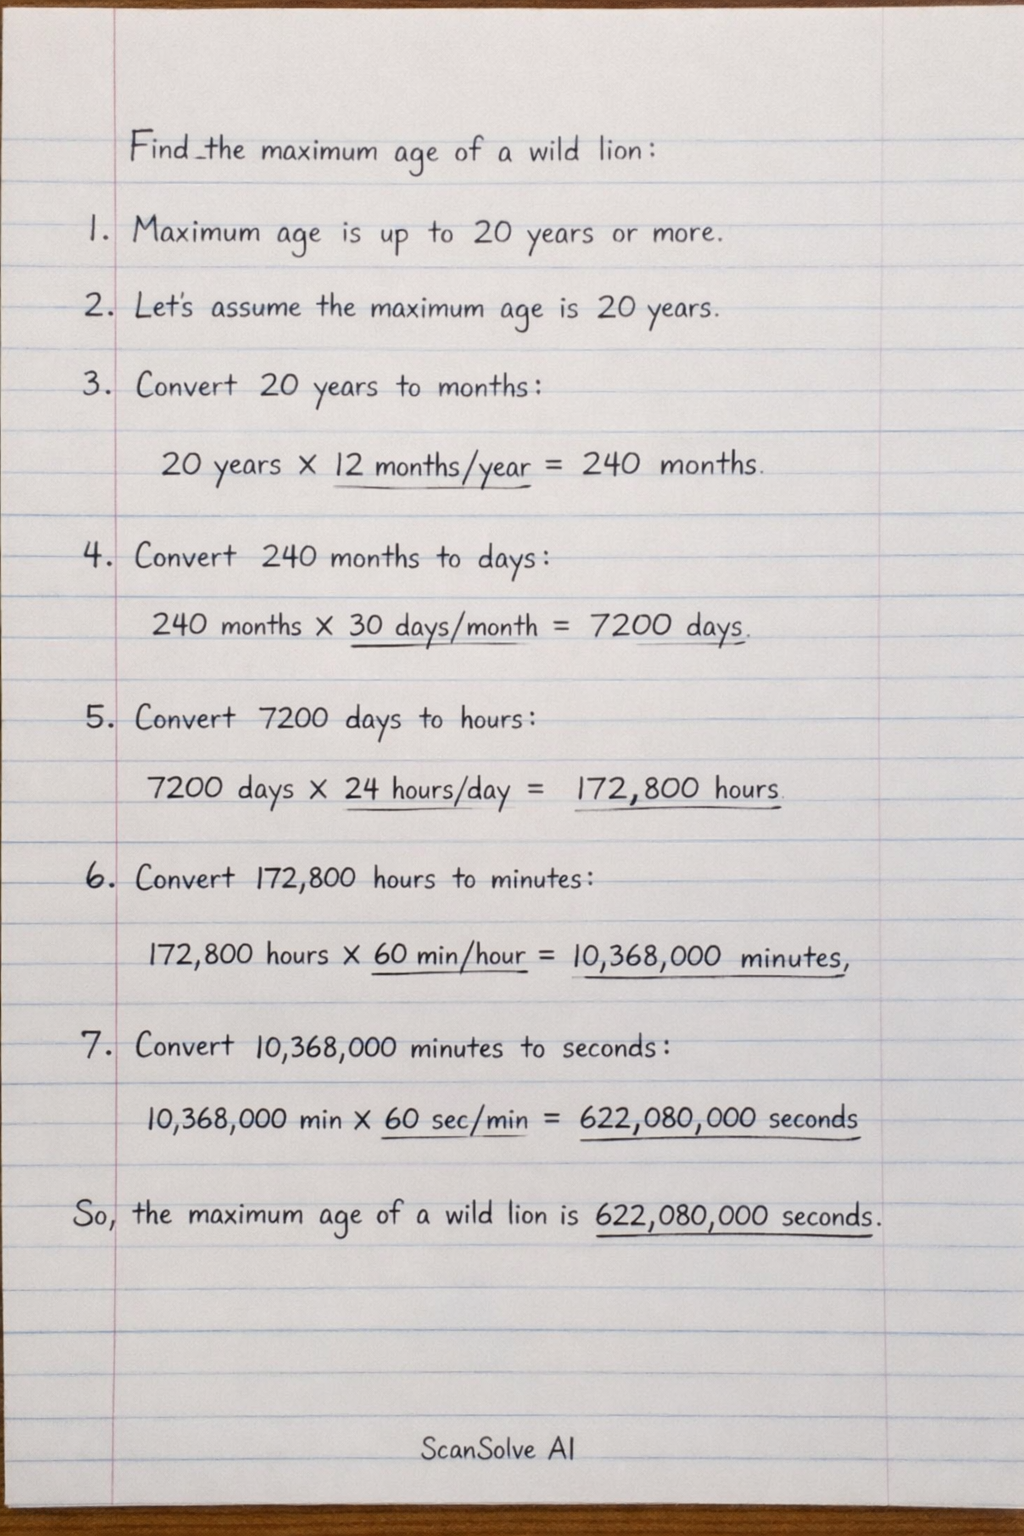 Find the maximum age of a wild lion:
1. Maximum age is up to 20 years or more.
2. Let's assume the maximum age is 20 years.
3. Convert 20 years to months:
20 years × 12 months/year = 240 months.
4. Convert 240 months to days:
240 months × 30 days/month = 7200 days.
5. Convert 7200 days to hours:
7200 days × 24 hours/day = 172,800 hours.
6. Convert 172,800 hours to minutes:
172,800 hours × 60 min/hour = 10,368,000 minutes,
7. Convert 10,368,000 minutes to seconds:
10,368,000 min × 60 sec/min = 622,080,000 seconds
So, the maximum age of a wild lion is 622,080,000 seconds.
ScanSolve AI